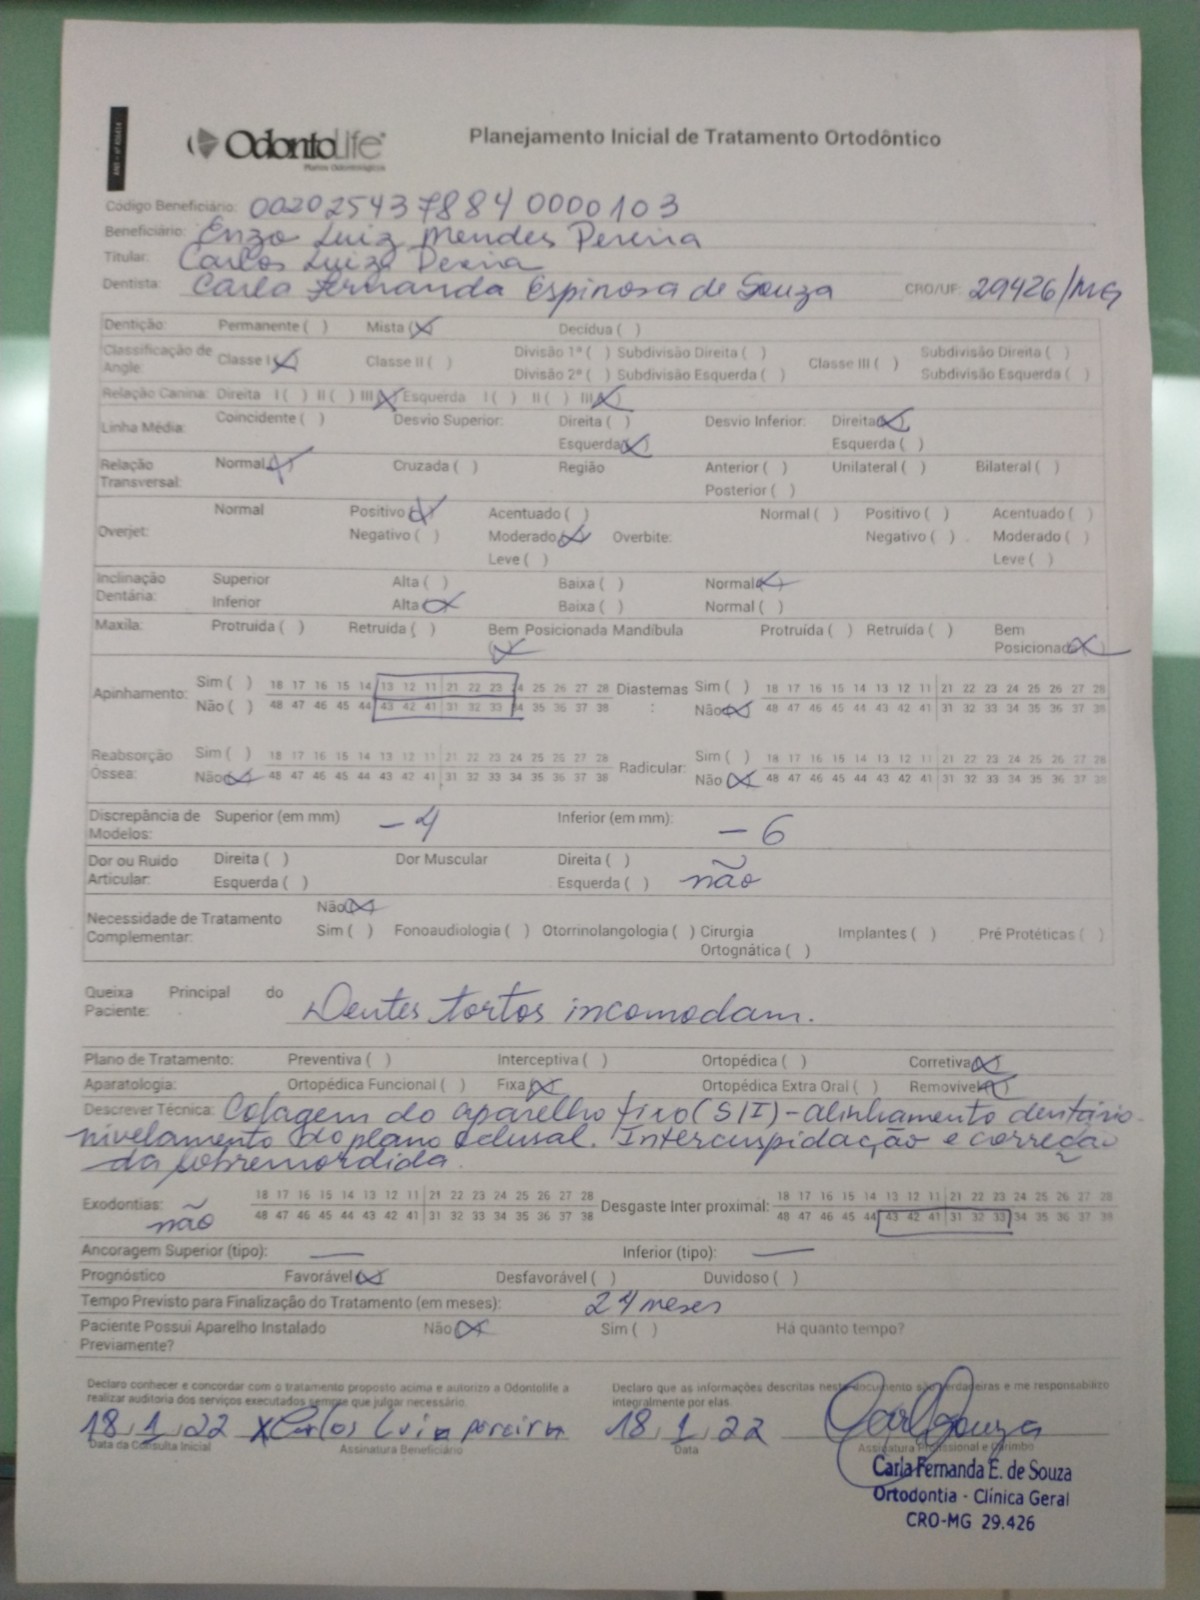 OdontoLife
Planos Odontológicos
Planejamento Inicial de Tratamento Ortodôntico
Código Beneficiário: 00202543788400000103
Beneficiário: Enzo Luiz Mendes Pereira
Titular: Carlos Luiz
Dentista: Carla Fernanda Espinosa de Souza CRO/UF: 29426/MG
Dentição: Permanente ( ) Mista (X) Decídua ( )
Classificação de Angle: Classe I (X) Classe II ( ) Divisão 1ª ( ) Subdivisão Direita ( ) Classe III ( ) Subdivisão Direita ( )
Divisão 2ª ( ) Subdivisão Esquerda ( ) Subdivisão Esquerda ( )
Relação Canina: Direita I ( ) II ( ) III (X) Esquerda I ( ) II ( ) III (X)
Linha Média: Coincidente ( ) Desvio Superior: Direita ( ) Desvio Inferior: Direita (X)
Esquerda (X) Esquerda ( )
Relação Transversal: Normal (X) Cruzada ( ) Região Anterior ( ) Unilateral ( ) Bilateral ( )
Posterior ( )
Overjet: Normal Positivo (X) Acentuado ( ) Overbite: Normal ( ) Positivo ( ) Acentuado ( )
Negativo ( ) Moderado (X) Negativo ( ) Moderado ( )
Leve ( ) Leve ( )
Inclinação Dentária: Superior Alta ( ) Baixa ( ) Normal (X)
Inferior Alta (X) Baixa ( ) Normal ( )
Maxila: Protruída ( ) Retruída ( ) Bem Posicionada (X) Mandíbula Protruída ( ) Retruída ( ) Bem Posicionada (X)
Apinhamento: Sim ( ) 18 17 16 15 14 13 12 11 21 22 23 24 25 26 27 28 Diastemas: Sim ( ) 18 17 16 15 14 13 12 11 21 22 23 24 25 26 27 28
Não ( ) 48 47 46 45 44 43 42 41 31 32 33 34 35 36 37 38 Não (X) 48 47 46 45 44 43 42 41 31 32 33 34 35 36 37 38
Reabsorção Óssea: Sim ( ) 18 17 16 15 14 13 12 11 21 22 23 24 25 26 27 28 Radicular: Sim ( ) 18 17 16 15 14 13 12 11 21 22 23 24 25 26 27 28
Não (X) 48 47 46 45 44 43 42 41 31 32 33 34 35 36 37 38 Não (X) 48 47 46 45 44 43 42 41 31 32 33 34 35 36 37 38
Discrepância de Modelos: Superior (em mm) -4 Inferior (em mm): -6
Dor ou Ruido Articular: Direita ( ) Dor Muscular Direita ( )
Esquerda ( ) Esquerda ( ) não
Necessidade de Tratamento Complementar: Não (X)
Sim ( ) Fonoaudiologia ( ) Otorrinolangologia ( ) Cirurgia Ortognática ( ) Implantes ( ) Pré Protéticas ( )
Queixa Principal do Paciente: Dentes tortos incomodam.
Plano de Tratamento: Preventiva ( ) Interceptiva ( ) Ortopédica ( ) Corretiva (X)
Aparatologia: Ortopédica Funcional ( ) Fixa (X) Ortopédica Extra Oral ( ) Removível (X)
Descrever Técnica: Colagem do aparelho fixo (S/I) - alinhamento dentário.
nivelamento do plano oclusal. Intercuspidação e correção
da sobremordida.
Exodontias: não 18 17 16 15 14 13 12 11 21 22 23 24 25 26 27 28 Desgaste Inter proximal: 18 17 16 15 14 13 12 11 21 22 23 24 25 26 27 28
48 47 46 45 44 43 42 41 31 32 33 34 35 36 37 38 48 47 46 45 44 43 42 41 31 32 33 34 35 36 37 38
Ancoragem Superior (tipo): — Inferior (tipo): —
Prognóstico Favorável (X) Desfavorável ( ) Duvidoso ( )
Tempo Previsto para Finalização do Tratamento (em meses): 24 meses
Paciente Possui Aparelho Instalado Previamente? Não (X) Sim ( ) Há quanto tempo?
Declaro conhecer e concordar com o tratamento proposto acima e autorizo a Odontolife a
realizar auditoria dos serviços executados sempre que julgar necessário.
Declaro que as informações descritas neste documento são verdadeiras e me responsabilizo
integralmente por elas.
18/1/22 X Carlos Luiz pereira 18/1/22
Data da Consulta Inicial Assinatura Beneficiário Data Assinatura Profissional e Carimbo
Carla Fernanda E. de Souza
Ortodontia - Clínica Geral
CRO-MG 29.426